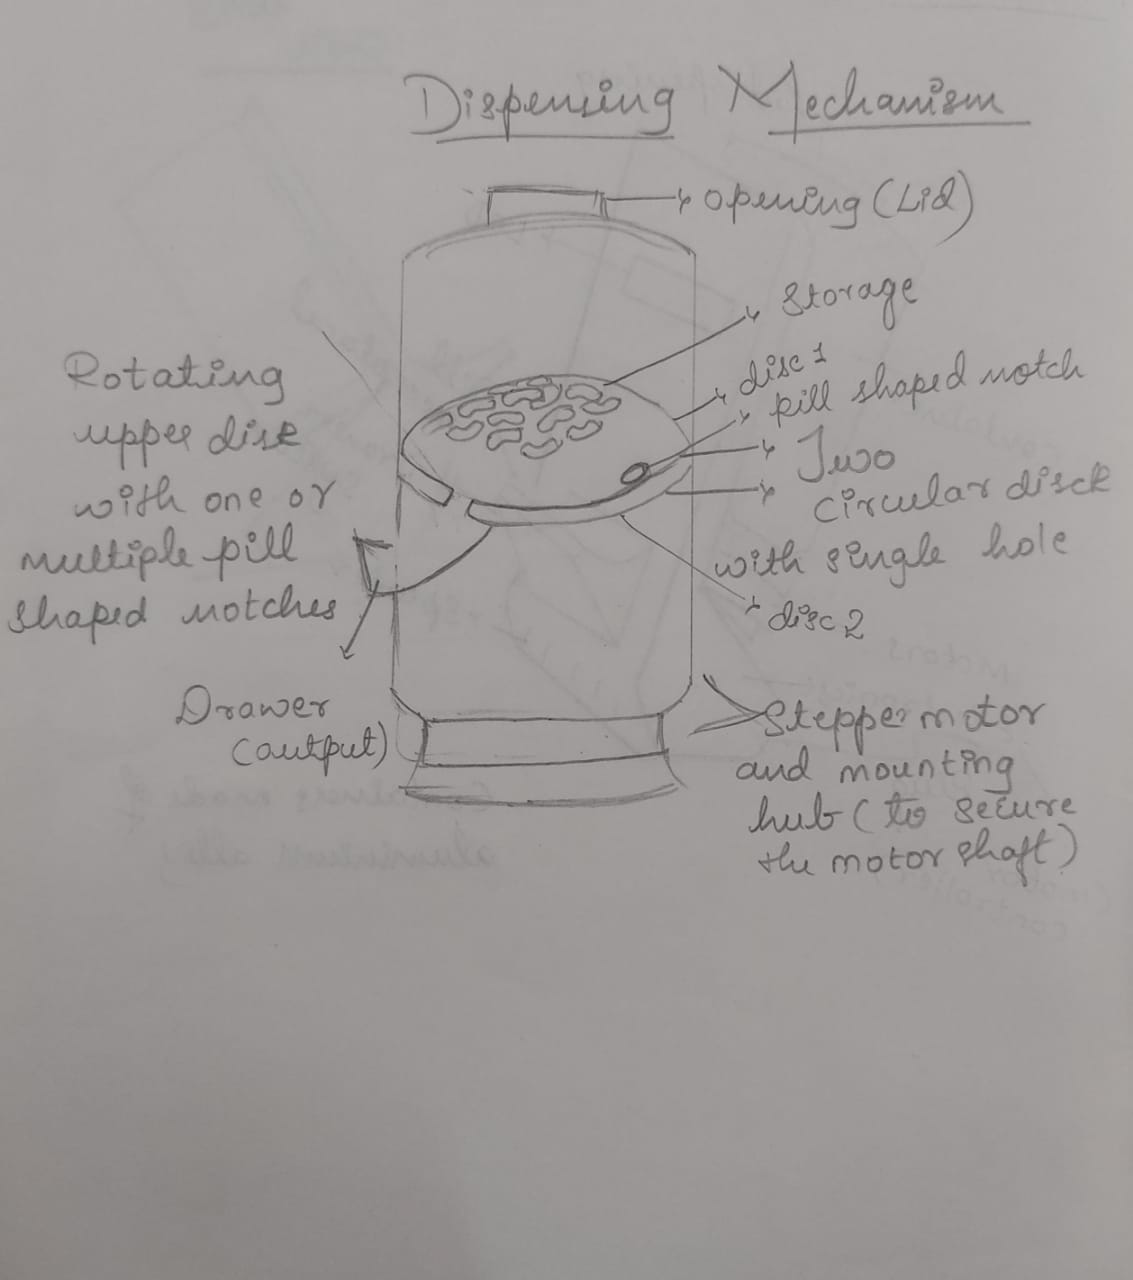 Dispensing Mechanism
opening (Lid)
Storage
disc 1
pill shaped notch
Two
circular disck
with single hole
disc 2
Rotating
upper disk
with one or
multiple pill
shaped notches
Drawer
(output)
Stepper motor
and mounting
hub (to secure
the motor shaft)